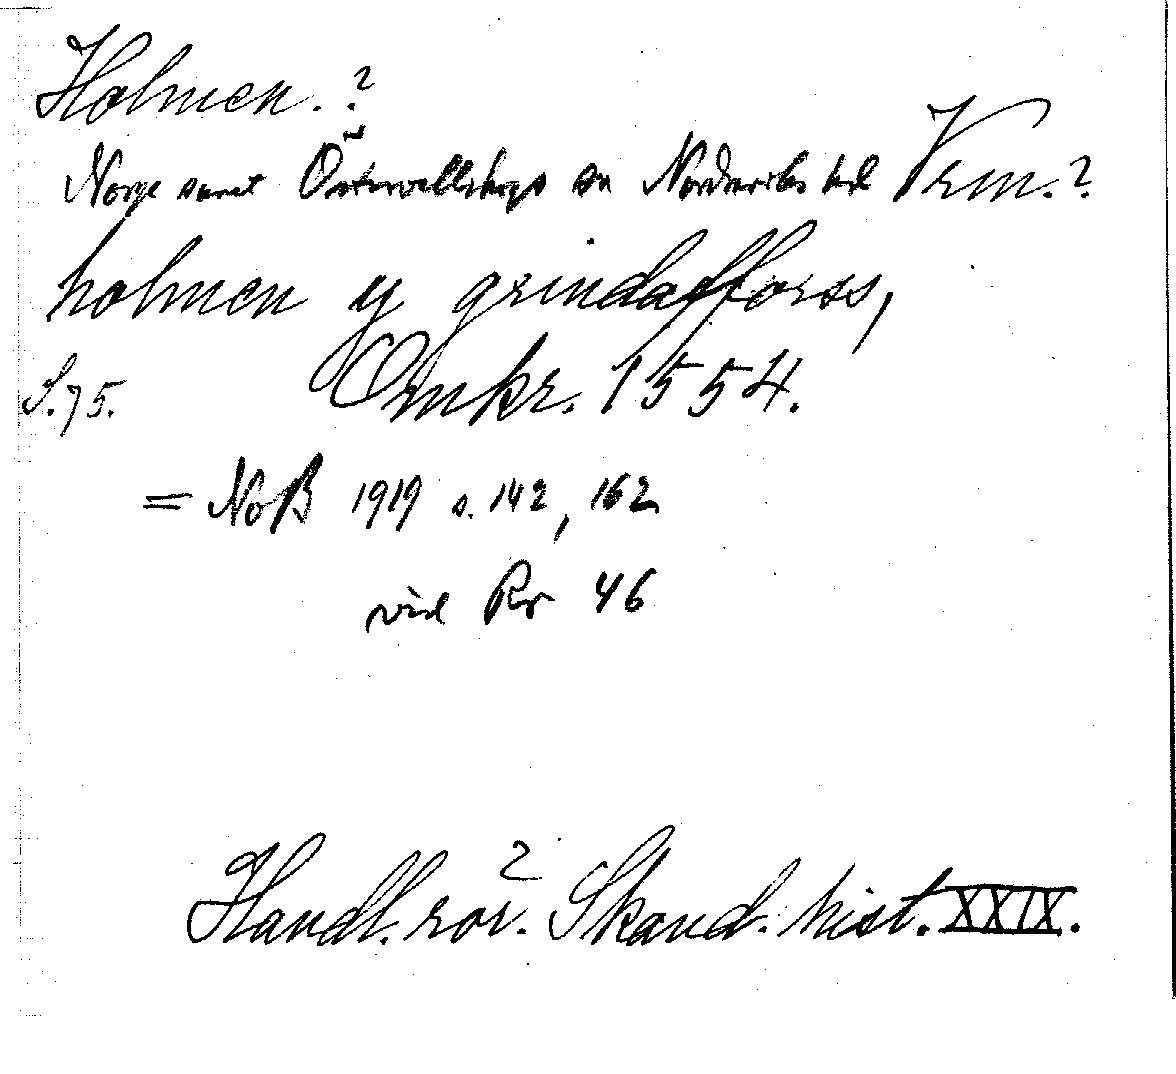 Holmen.?
Norge samt Östervallskogs sn Nordmarks hd Vrm.?
holmen y grindafforss,
S. 75. Omkr. 1554.
= NoB 1919 s. 142, 162
vid Rr 46
Handl. rör. Skand. hist. XXIX.